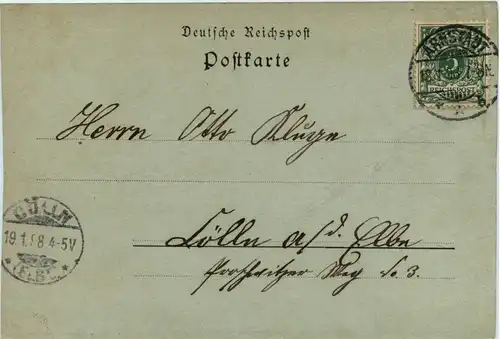 Deutsche Reichspost
Postkarte
ARNSTADT
5
Herrn Otto Kluge
CÖLLN
19 1. 98 4-5V
(ELBE)
Cölln a/d. Elbe
Proschwitzer Weg No 3.